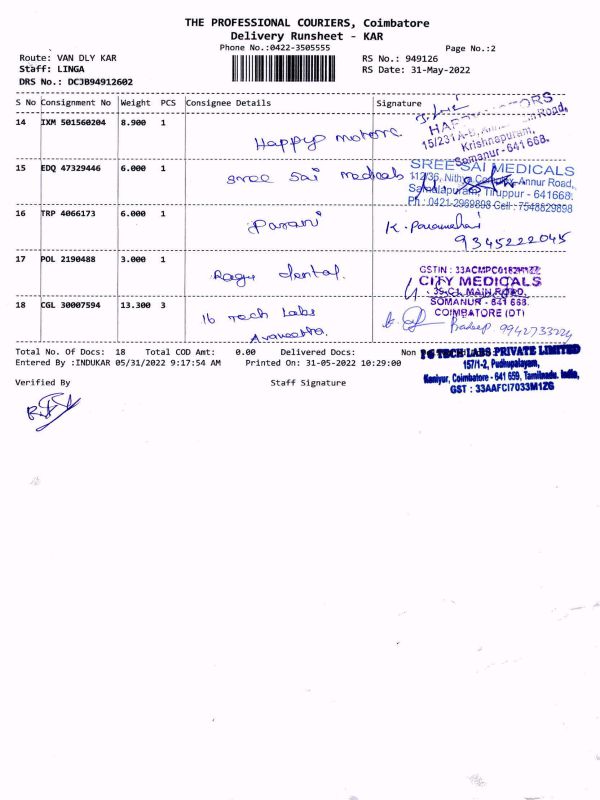 THE PROFESSIONAL COURIERS, Coimbatore
Delivery Runsheet - KAR
Phone No.:0422-3505555
Page No.:2
Route: VAN DLY KAR
RS No.: 949126
Staff: LINGA
RS Date: 31-May-2022
DRS No.: DCJB94912602
S No Consignment No Weight PCS Consignee Details Signature
14 IXM 501560204 8.900 1
Happy motors
HAPPY MOTORS
Road,
Krishnapuram,
Somanur - 641 668.
15 EDQ 47329446 6.000 1
Sree Sai medicals
SREE SAI MEDICALS
Annur Road,
Samalapuram, Tiruppur - 641668.
Ph : 0421-2969898 Cell : 7548829898
16 TRP 4066173 6.000 1
Parani
9345222045
17 POL 2190488 3.000 1
Ragu dental
CITY MEDICALS
MAIN ROAD,
SOMANUR - 641 668.
COIMBATORE (DT)
18 CGL 30007594 13.300 3
16 Tech Labs
Pradeep
Total No. Of Docs: 18 Total COD Amt: 0.00 Delivered Docs: Non
Entered By :INDUKAR 05/31/2022 9:17:54 AM Printed On: 31-05-2022 10:29:00
TECH LABS PRIVATE LIMITED
157/1-2, Pudhupalayam,
Kaniyur, Coimbatore - 641 659, Tamilnadu. India,
GST : 33AAFCI7033M1ZG
Verified By
Staff Signature